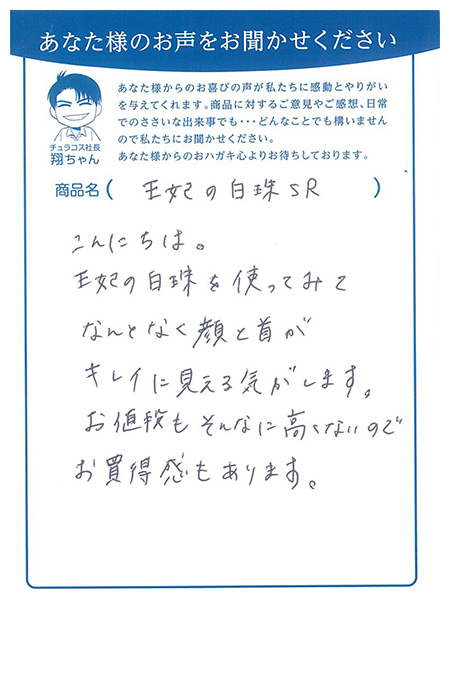 あなた様のお声をお聞かせください
あなた様からのお喜びの声が私たちに感動とやりがい
を与えてくれます。商品に対するご意見やご感想、日常
でのささいな出来事でも・・・どんなことでも構いません
ので私たちにお聞かせください。
あなた様からのおハガキ心よりお待ちしております。
チュラコス社長
翔ちゃん
商品名( 王妃の白珠SR )
こんにちは。
王妃の白珠を使ってみて
なんとなく顔と首が
キレイに見える気がします。
お値段もそんなに高くないので
お買得感もあります。